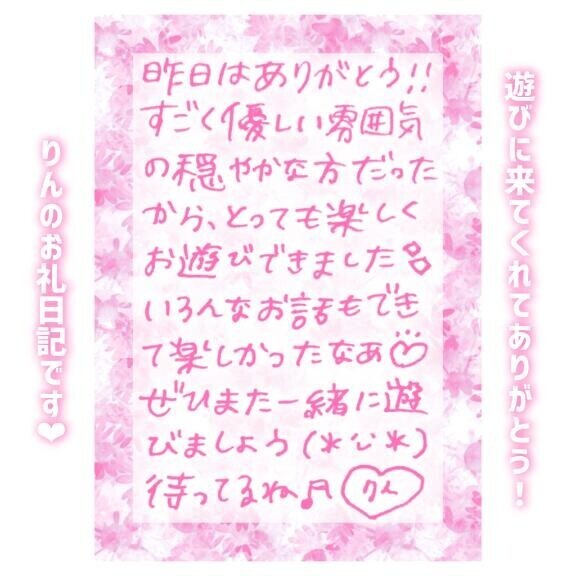 遊びに来てくれてありがとう！
昨日はありがとう!!
すごく優しい雰囲気
の穏やかな方だった
から、とっても楽しく
お遊びできました
いろんなお話もでき
て楽しかったなあ♡
ぜひまた一緒に遊
びましょう(*ᵕ*)
待ってるね♫ りん
りんのお礼日記です❤